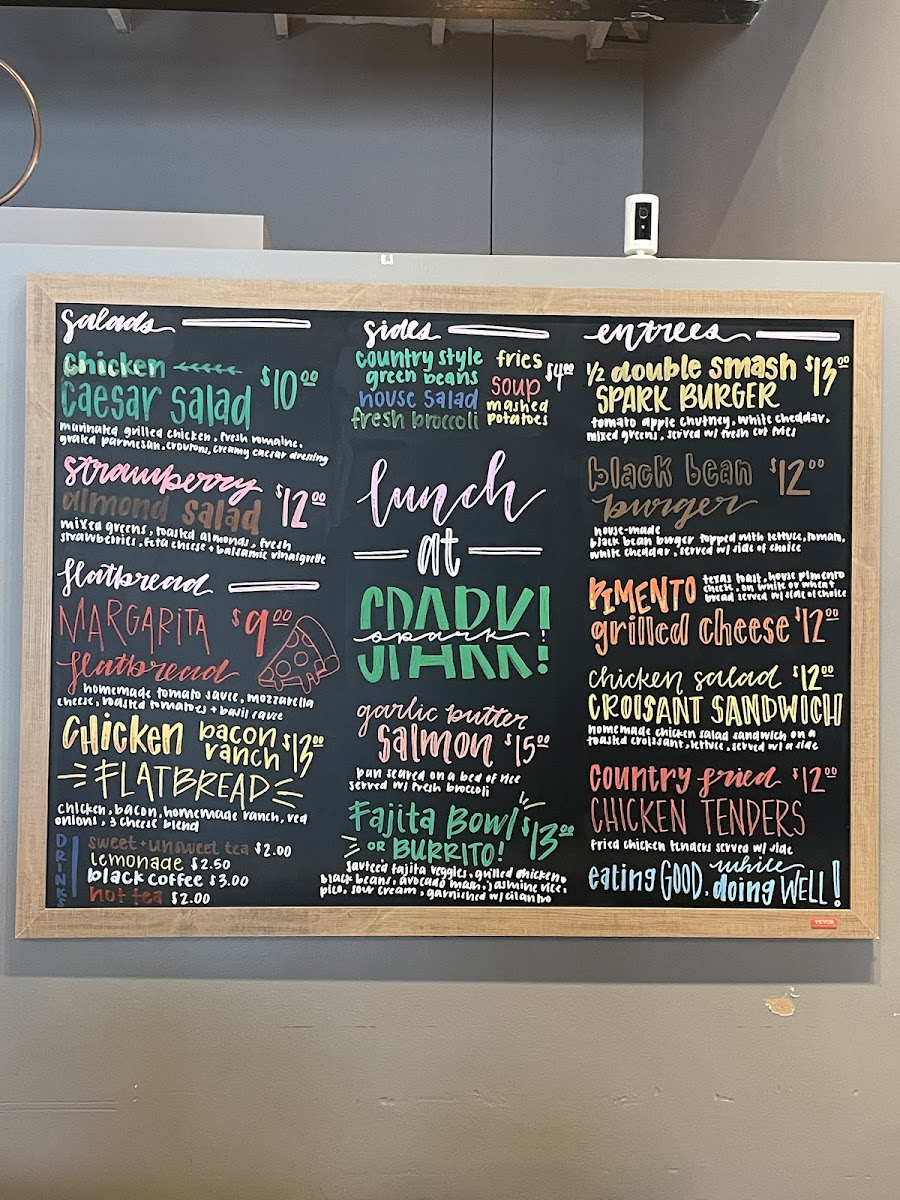 salads
chicken
caesar salad $10.00
marinated grilled chicken, fresh romaine,
grated parmesan, croutons, creamy caesar dressing
strawberry
almond salad $12.00
mixed greens, toasted almonds, fresh
strawberries, feta cheese + balsamic vinaigrette
flatbread
MARGARITA $9.00
flatbread
homemade tomato sauce, mozzarella
cheese, roasted tomatoes + basil sauce
CHICKEN bacon
ranch $13.00
FLATBREAD
chicken, bacon, homemade ranch, red
onions, 3 cheese blend
DRINKS
sweet + unsweet tea $2.00
Lemonade $2.50
black coffee $3.00
hot tea $2.00
sides
country style
green beans
house salad
fresh broccoli
fries
soup $4.00
mashed
potatoes
lunch
at
SPARK!
spark
garlic butter
salmon $15.00
pan seared on a bed of rice
served w/ fresh broccoli
Fajita Bowl $13.00
OR BURRITO!
sauteed fajita veggies, grilled chicken,
black beans, avocado mash, jasmine rice,
pico, sour cream, garnished w/ cilantro
entrees
1/2 double smash $13.00
SPARK BURGER
tomato apple chutney, white cheddar,
mixed greens, served w/ fresh cut fries
black bean $12.00
burger
house-made
black bean burger topped with lettuce, tomato,
white cheddar, served w/ side of choice
PIMENTO
texas toast, house pimento
cheese, on white or wheat
bread served w/ side of choice
grilled cheese $12.00
chicken salad $12.00
CROISANT SANDWICH
homemade chicken salad sandwich on a
toasted croissant, lettuce, served w/ a side
country fried $12.00
CHICKEN TENDERS
fried chicken tenders served w/ side
eating GOOD, while
doing WELL!
VEVOR